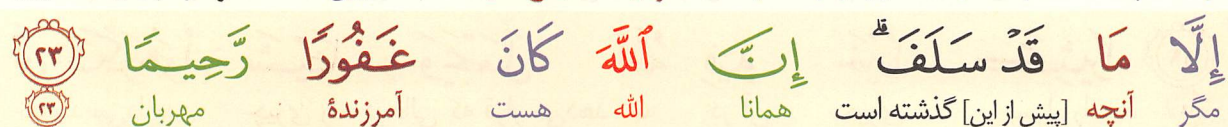 إِلَّا مَا قَدْ سَلَفَ ۗ إِنَّ ٱللَّهَ كَانَ غَفُورًا رَّحِيمًا ٢٣
مگر آنچه [پیش از این] گذشته است همانا الله هست آمرزندهٔ مهربان ٢٣